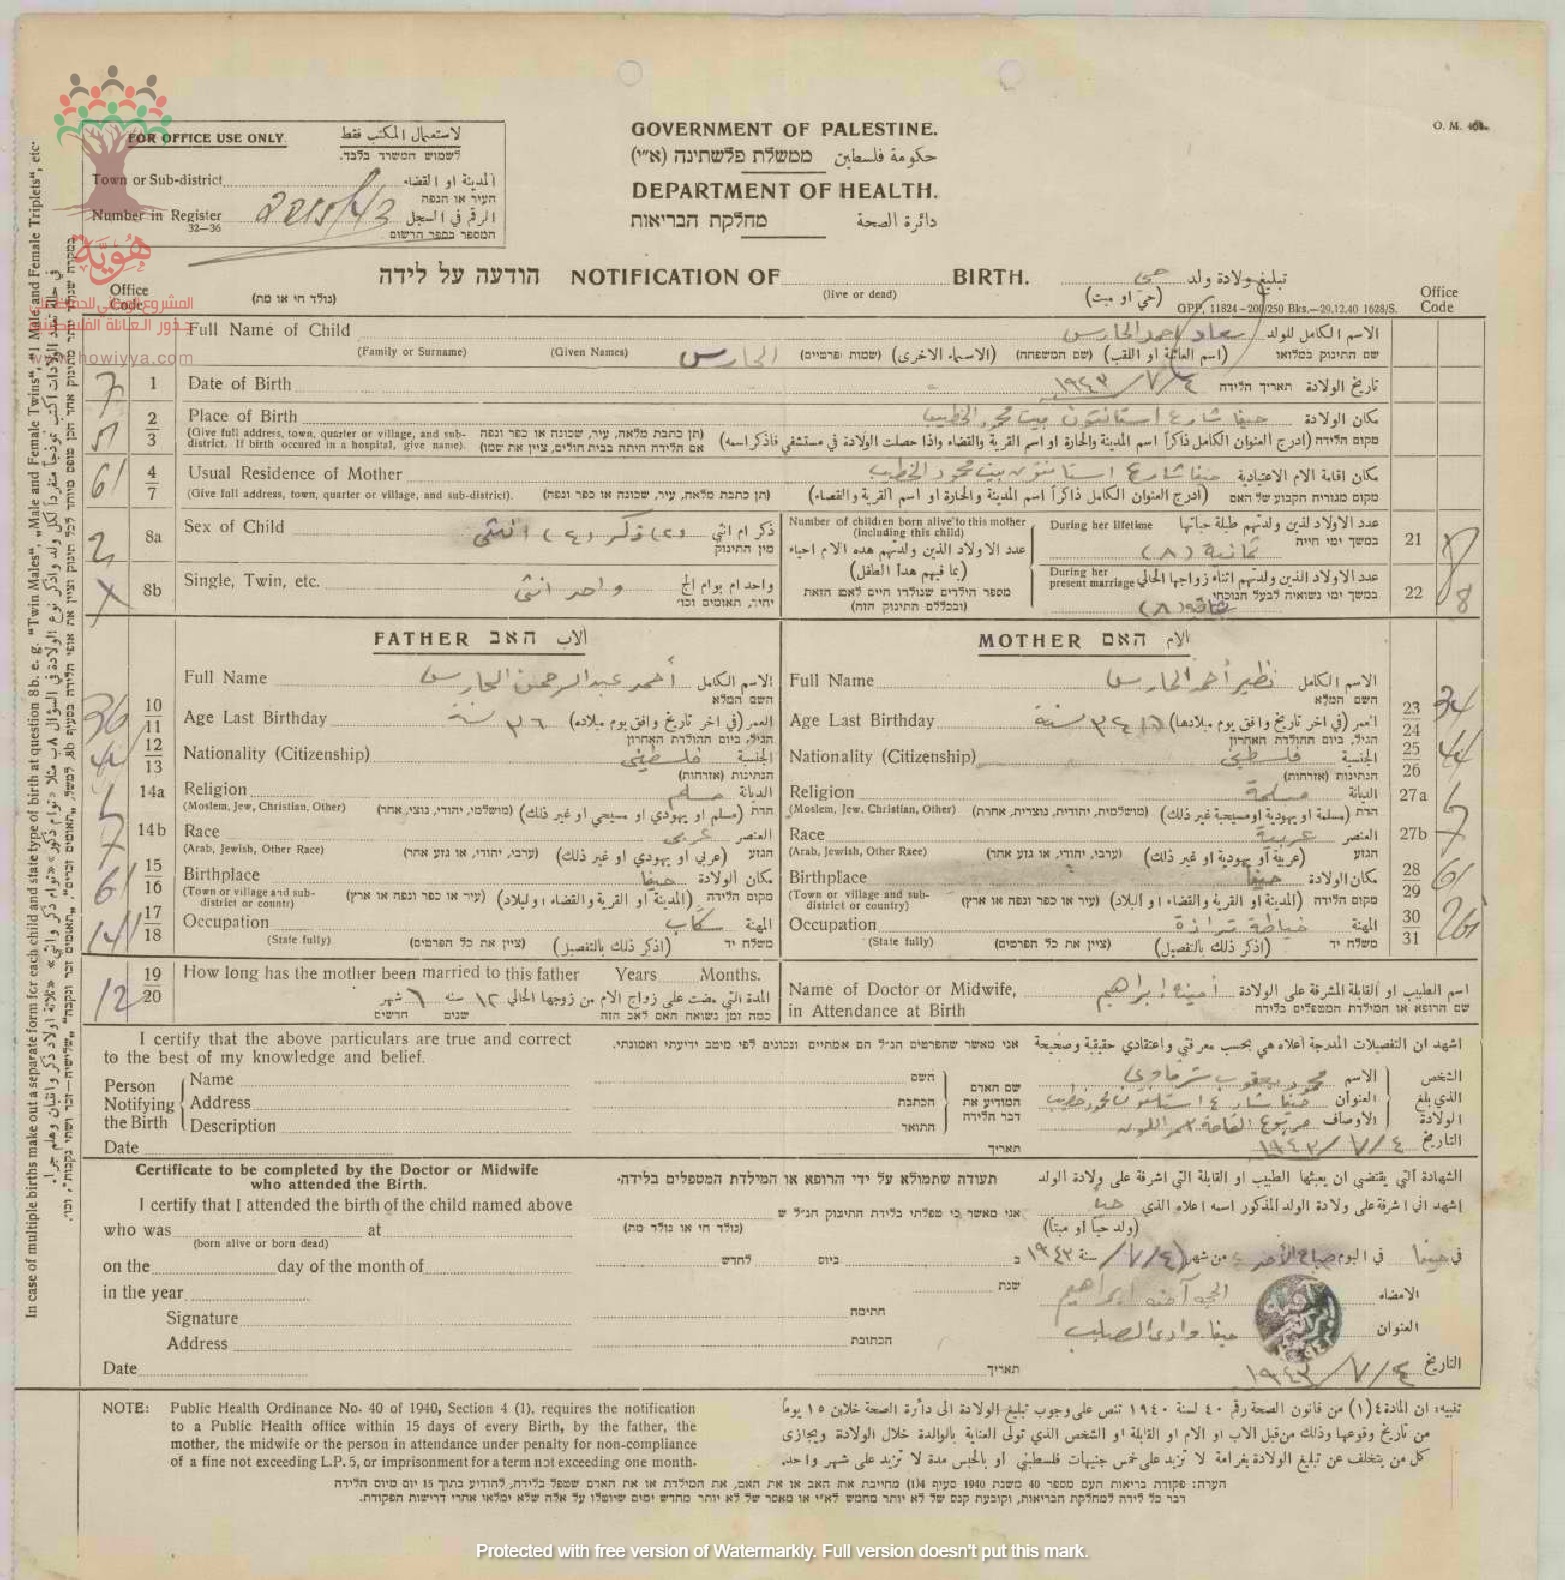 O. M. 404.
FOR OFFICE USE ONLY. لاستعمال المكتب فقط
לשמוש המשרד בלבד.
Town or Sub-district المدينة او القضاء
העיר או הנפה
Number in Register 2215/43 الرقم في السجل
32—36 המספר בספר הרשום
GOVERNMENT OF PALESTINE.
ממשלת פלשתינה (א״י) حكومة فلسطين
DEPARTMENT OF HEALTH.
מחלקת הבריאות دائرة الصحة
הודעה על לידה NOTIFICATION OF BIRTH. تبليغ ولادة ولد حي
(נולד חי או מת) (live or dead) (حي او ميت)
Office Code GPP. 11824—200/250 Bks.—29.12.40 1628/S. Office Code
هوية
المشروع الوطني للحفاظ على
جذور العائلة الفلسطينية
www.howiyya.com
Full Name of Child سعاد احمد الحارس الاسم الكامل للولد
(Family or Surname) (Given Names) الحارس (שמות פרטיים) (الاسماء الاخرى) (שם המשפחה) (اسم العائلة او اللقب) שם התינוק במלואו
7 1 Date of Birth ٤/٧/١٩٤٣ תאריך הלידה تاريخ الولادة
2 3 Place of Birth حيفا شارع استانتون بيت محمود الخطيب مكان الولادة
(Give full address, town, quarter or village, and sub-district. If birth occured in a hospital, give name). (תן כתבת מלאה, עיר, שכונה או כפר ונפה אם הלידה היתה בבית חולים, ציין את שמו) (ادرج العنوان الكامل ذاكراً اسم المدينة والحارة او اسم القرية والقضاء واذا حصلت الولادة في مستشفى فاذكر اسمه) מקום הלידה
61 4 7 Usual Residence of Mother حيفا شارع استانتون بيت محمود الخطيب مكان اقامة الام الاعتيادية
(Give full address, town, quarter or village, and sub-district). (תן כתבת מלאה, עיר, שכונה או כפר ונפה) (ادرج العنوان الكامل ذاكراً اسم المدينة والحارة او اسم القرية والقضاء) מקום מגורית הקבוע של האם
2 8a Sex of Child (٢) ذكر (٤) انثى ذكر ام انثى
מין התינוק
8b Single, Twin, etc. واحد انثى واحد ام توام الخ
יחיד, תאומים וכו׳
Number of children born alive to this mother (including this child)
عدد الاولاد الذين ولدتهم هذه الام احياء
(بما فيهم هذا الطفل)
מספר הילדים שנולדו חיים לאם הזאת
(ובכללם התינוק הזה)
During her lifetime عدد الاولاد الذين ولدتهم طيلة حياتها 21 8
במשך ימי חייה ثمانية (٨)
During her present marriage عدد الاولاد الذين ولدتهم اثناء زواجها الحالي 22 8
במשך ימי נשואיה לבעל הנוכחי (٨)
FATHER האב الاب MOTHER האם الام
Full Name أحمد عبد الرحمن الحارس الاسم الكامل
השם המלא
Full Name نظير أحمد الحارس الاسم الكامل
השם המלא
36 10 11 Age Last Birthday ٣٦ سنة العمر (في اخر تاريخ وافق يوم ميلاده)
הגיל, ביום ההולדת האחרון
Age Last Birthday ٣٤ سنة العمر (في اخر تاريخ وافق يوم ميلادها) 23 24 34
הגיל, ביום ההולדת האחרון
12 13 Nationality (Citizenship) فلسطيني الجنسية
הנתינות (אזרחות)
Nationality (Citizenship) فلسطيني الجنسية 25 26
הנתינות (אזרחות)
14a Religion مسلم الديانة
(Moslem, Jew, Christian, Other) (מושלמי, יהודי, נוצי, אחר) (مسلم او يهودي او مسيحي او غير ذلك) הדת
Religion مسلمة الديانة 27a
(Moslem, Jew, Christian, Other) (מושלמית, יהודית, נוצרית, אחרת) (مسلمة او يهودية او مسيحية غير ذلك) הדת
14b Race عربي العنصر
(Arab, Jewish, Other Race) (ערבי, יהודי, או גזע אחר) (عربي او يهودي او غير ذلك) הגזע
Race عربية العنصر 27b
(Arab, Jewish, Other Race) (ערבי, יהודי, או גזע אחר) (عربية او يهودية او غير ذلك) הגזע
61 15 16 Birthplace حيفا مكان الولادة
(Town or village and sub-district or country) (עיר או כפר ונפה או ארץ) (المدينة او القرية والقضاء او البلاد) מקום הלידה
Birthplace حيفا مكان الولادة 28 29 61
(Town or village and sub-district or country) (עיר או כפר ונפה או ארץ) (المدينة او القرية والقضاء او البلاد) מקום הלידה
17 18 Occupation المهنة
(State fully) (ציין את כל הפרטים) (اذكر ذلك بالتفصيل) משלח יד
Occupation خياطة المهنة 30 31
(State fully) (ציין את כל הפרטים) (اذكر ذلك بالتفصيل) משלח יד
12 19 20 How long has the mother been married to this father Years Months.
المدة التي مضت على زواج الام من زوجها الحالي ١٢ سنه ٦ شهر
כמה זמן נשואה האם לאב הזה שנים חדשים
Name of Doctor or Midwife, in Attendance at Birth أمينه ابراهيم اسم الطبيب او القابلة المشرفة على الولادة
שם הרופא או המילדת המטפלים בלידה
I certify that the above particulars are true and correct to the best of my knowledge and belief. אני מאשר שהפרטים הנ״ל הם אמתיים ונכונים לפי מיטב ידיעתי ואמונתי. اشهد ان التفصيلات المدرجة اعلاه هي بحسب معرفتي واعتقادي حقيقية وصحيحة
Person Notifying the Birth
Name השם محمود يعقوب الاسم
Address הכתבת العنوان
Description התואר مربوع القامة الاوصاف
שם האדם המודיע את דבר הלידה الشخص الذي بلغ الولادة
Date תאריך ٤/٧/١٩٤٣ التاريخ
Certificate to be completed by the Doctor or Midwife who attended the Birth. תעודה שתמולא על ידי הרופא או המילדת המטפלים בלידה. الشهادة التي يقتضي ان يعبئها الطبيب او القابلة التي اشرفة على ولادة الولد
I certify that I attended the birth of the child named above אני מאשר כי טפלתי בלידת התינוק הנ״ל ש اشهد اني اشرفة على ولادة الولد المذكور اسمه اعلاه الذي
who was at (נולד חי או נולד מת) (ولد حيا او ميتا)
(born alive or born dead)
on the day of the month of לחדש ביום ב في حيفا في اليوم صباح الأحد من شهر ٤/٧/ سنة ١٩٤٣
in the year שנת
Signature חתימה الحجه آمنه ابراهيم الامضاء
Address הכתובת حيفا وادي الصليب العنوان
Date תאריך ٤/٧/١٩٤٣ التاريخ
NOTE: Public Health Ordinance No. 40 of 1940, Section 4 (1), requires the notification
to a Public Health office within 15 days of every Birth, by the father, the
mother, the midwife or the person in attendance under penalty for non-compliance
of a fine not exceeding L.P. 5, or imprisonment for a term not exceeding one month.
تنبيه: ان المادة ٤(١) من قانون الصحة رقم ٤٠ لسنة ١٩٤٠ تنص على وجوب تبليغ الولادة الى دائرة الصحة خلال ١٥ يوماً
من تاريخ وقوعها وذلك من قبل الاب او الام او القابلة او الشخص الذي تولى العناية بالوالدة خلال الولادة ويجازى
كل من يتخلف عن تبليغ الولادة بغرامة لا تزيد على خمس جنيهات فلسطيني او بالحبس مدة لا تزيد على شهر واحد.
הערה: פקודת בריאות העם מספר 40 משנת 1940 סעיף 4(1) מחייבת את האב או את האם, את המילדת או את האדם שטפל בלידה, להודיע בתוך 15 יום מיום הלידה
דבר כל לידה למחלקת הבריאות, וקובעת קנס של לא יותר מחמש לא״י או מאסר של לא יותר מחדש ימים שיוטלו על אלה שלא ימלאו אחרי דרישות הפקודה.
In case of multiple births make out a separate form for each child and state type of birth at question 8b. e. g. "Twin Males", „Male and Female Twins", "1 Male and Female Triplets", etc.
Protected with free version of Watermarkly. Full version doesn't put this mark.